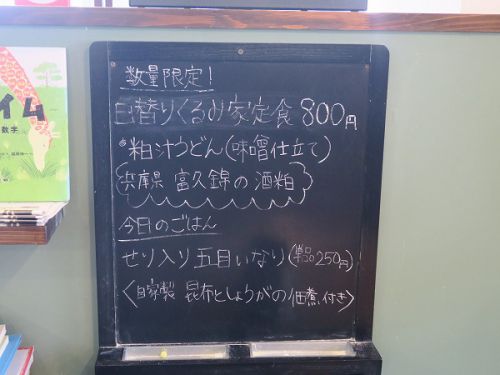 数量限定!
日替りくるみ家定食 800円
*粕汁うどん(味噌仕立て)
兵庫県 富久錦の酒粕
今日のごはん
せり入り五目いなり(単品250円)
<自家製 昆布としょうがの佃煮付き>
イム
数字